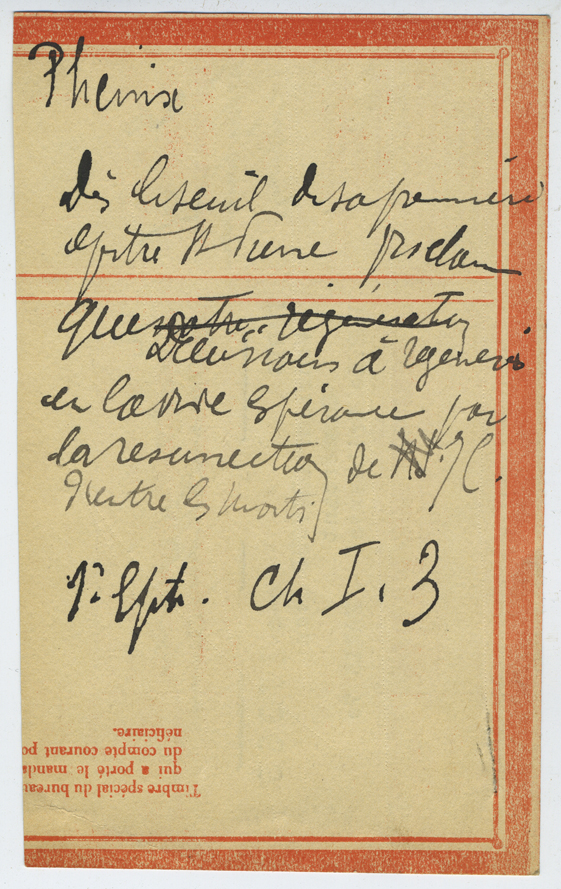 Phenix
Dès le seuil de sa première
épitre St Pierre proclame
que notre régénération
Dieu nous a régénérés
en la vive Espérance par
la resurrection de N. J C.
d'entre les morts
1ère Epitr. Ch I. 3
Timbre spécial du bureau
qui a porté le manda
du compte courant po
néficiaire.